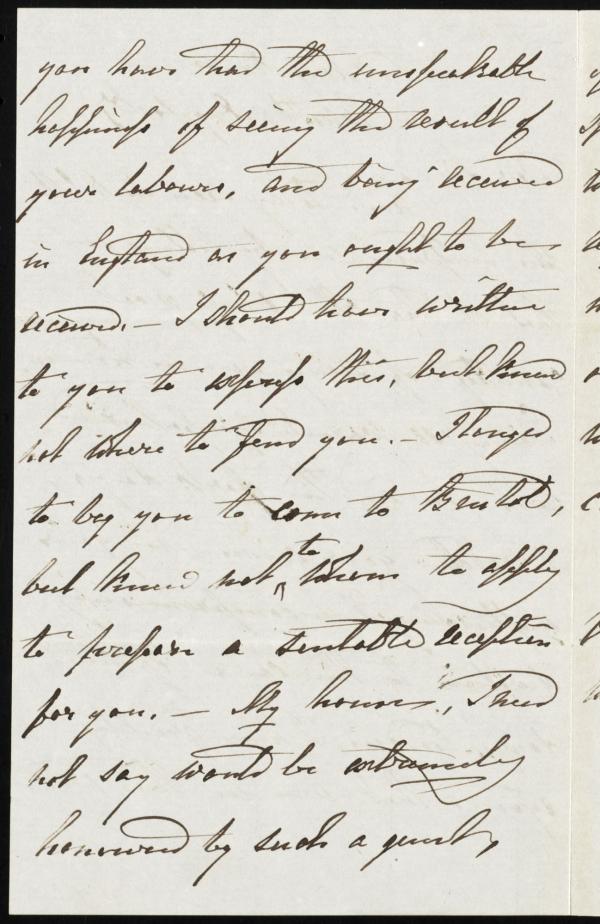 you have had the unspeakable
happiness of seeing the result of
your labours, and being received
in England as you ought to be
received. — I should have written
to you to express this, but knew
not where to find you. — I longed
to beg you to come to Bristol,
but knew not to whom to apply
to prepare a suitable reception
for you. — My house, I need
not say would be extremely
honoured by such a guest,